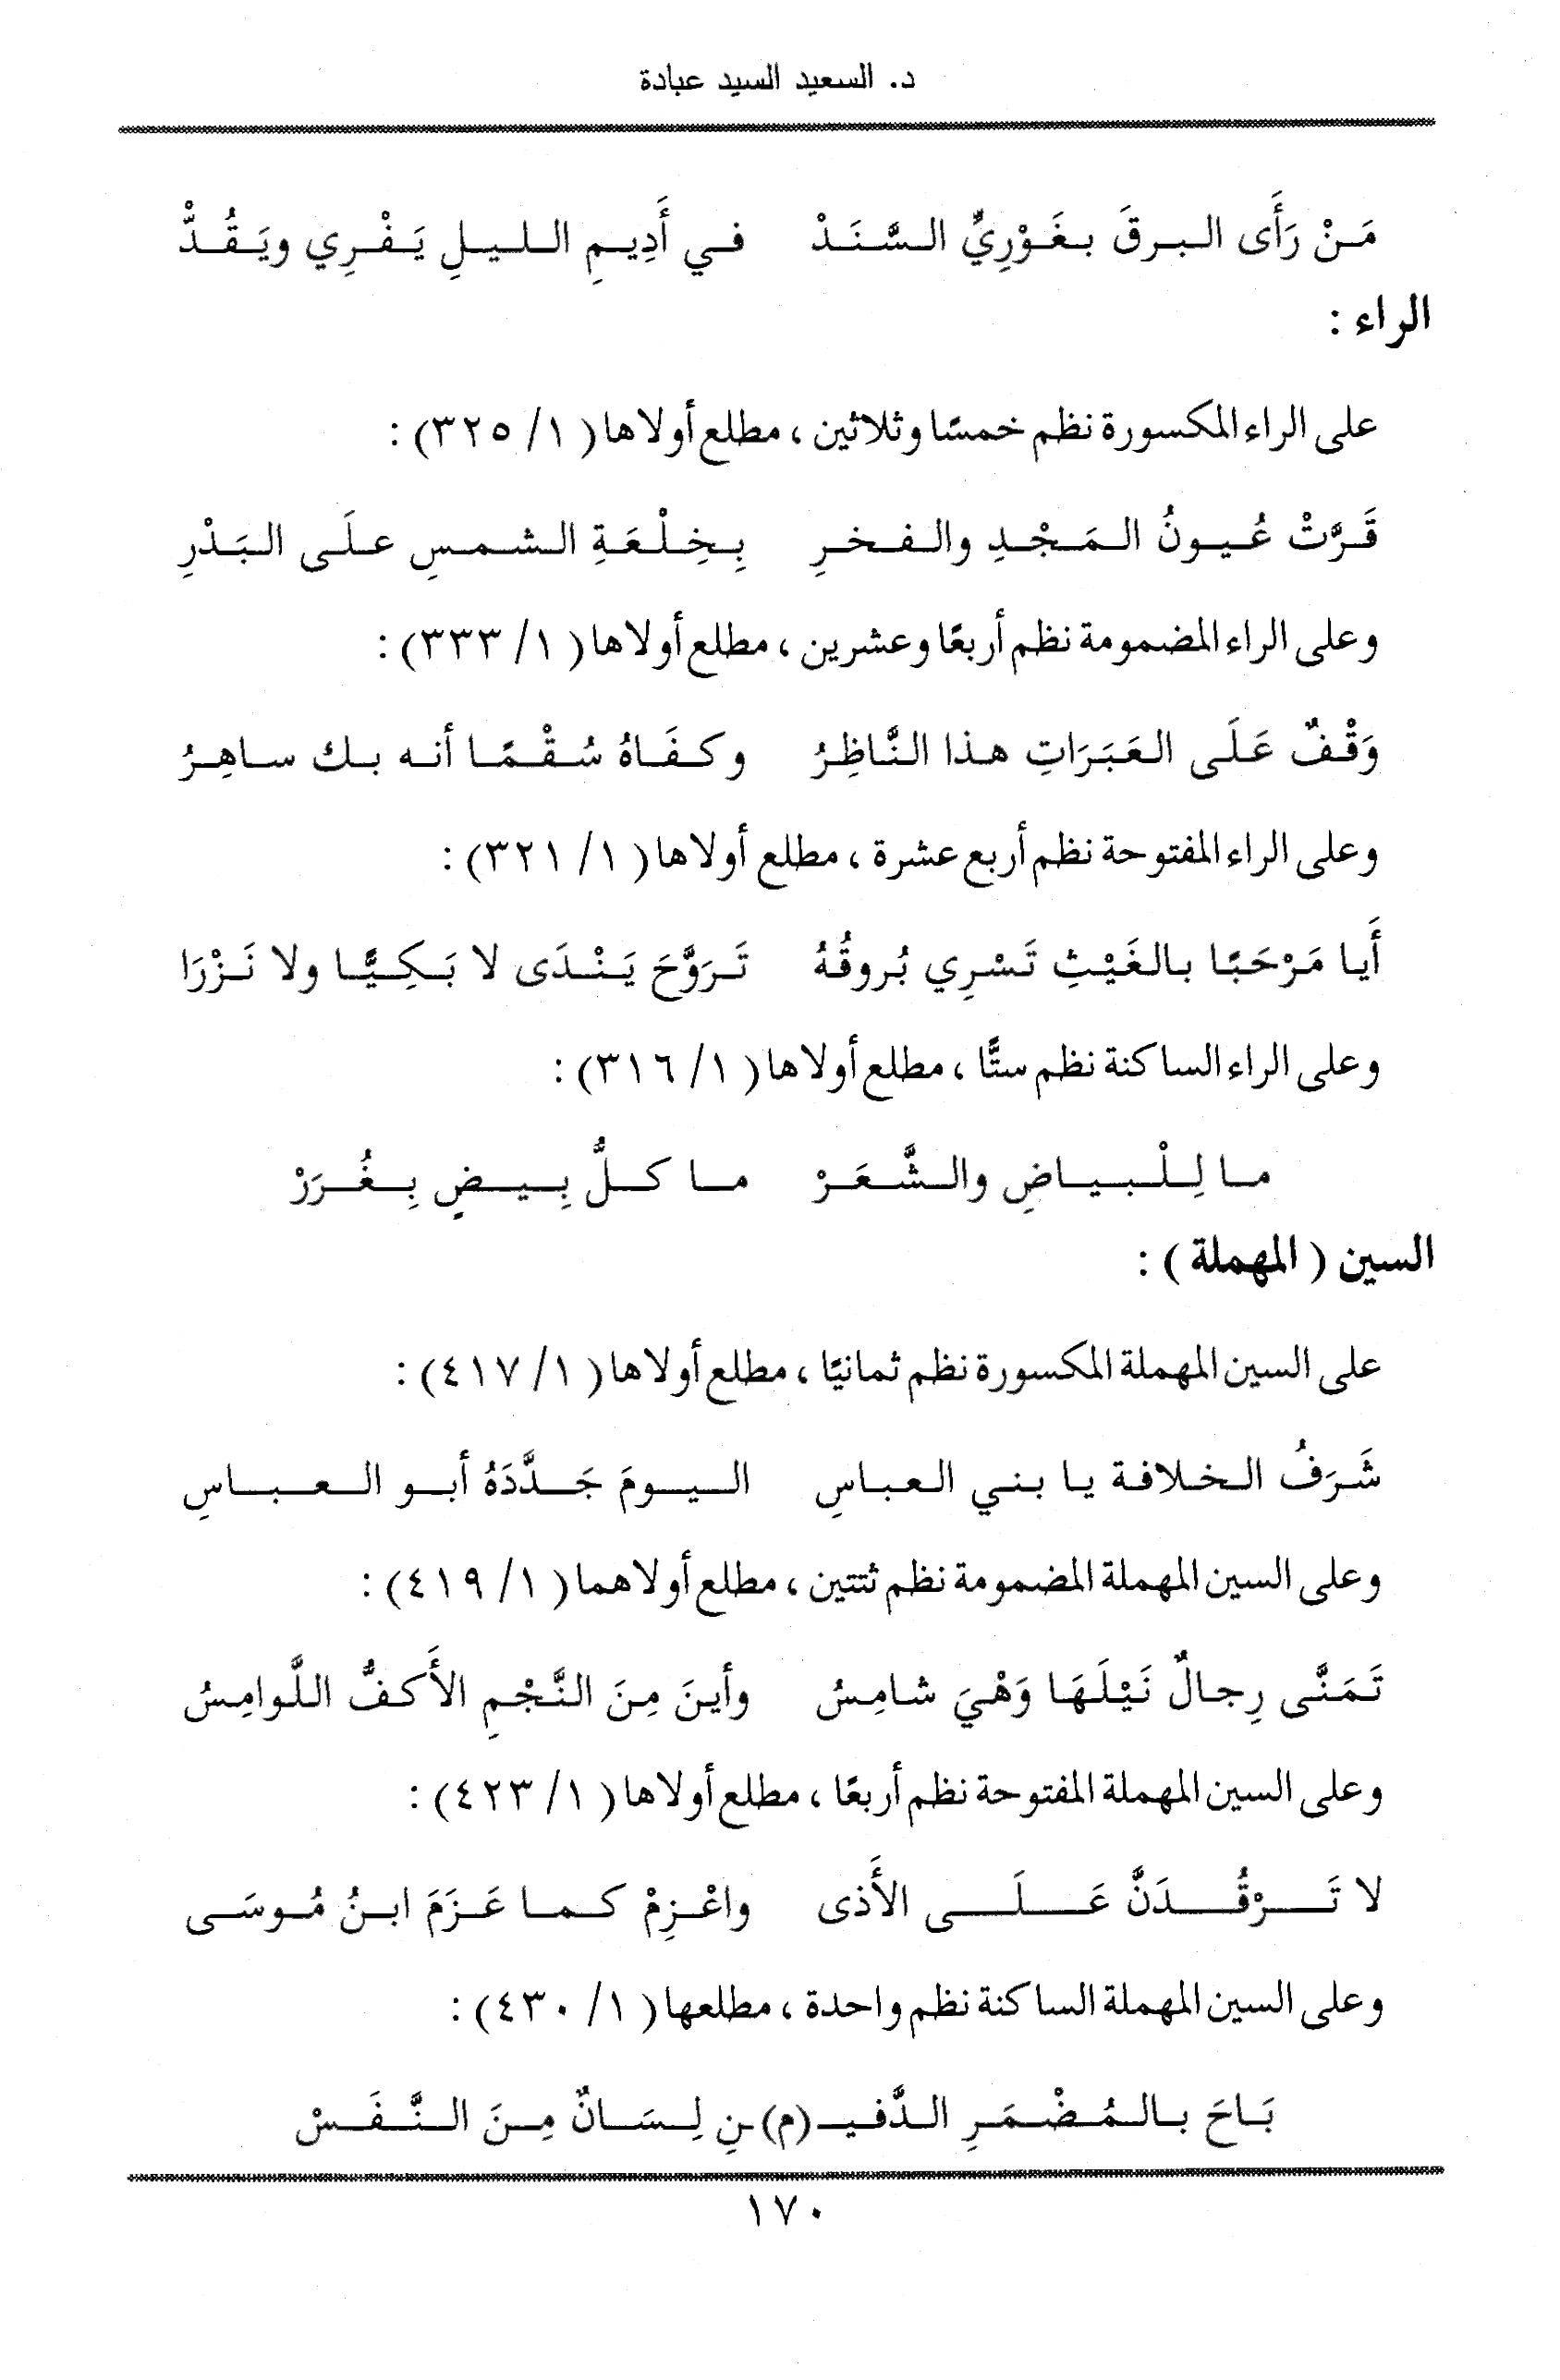 د. السعيد السيد عبادة
مَنْ رَأَى البرقَ بغَوْرِيِّ السَّنَدْ في أَدِيمِ الليلِ يَفْرِي ويَقُدّْ
الراء :
على الراء المكسورة نظم خمسًا وثلاثين ، مطلع أولاها ( ١/ ٣٢٥) :
قَرَّتْ عُيونُ المَجْدِ والفخرِ بِخِلْعَةِ الشمسِ علَى البَدْرِ
وعلى الراء المضمومة نظم أربعًا وعشرين ، مطلع أولاها ( ١/ ٣٣٣) :
وَقْفٌ عَلَى العَبَرَاتِ هذا النَّاظِرُ وكفَاهُ سُقْمًا أنه بك ساهِرُ
وعلى الراء المفتوحة نظم أربع عشرة ، مطلع أولاها ( ١/ ٣٢١) :
أَيا مَرْحَبًا بالغَيْثِ تَسْرِي بُروقُهُ تَرَوَّحَ يَنْدَى لا بَكِيًّا ولا نَزْرَا
وعلى الراء الساكنة نظم ستًّا ، مطلع أولاها ( ١/ ٣١٦) :
ما لِلْبياضِ والشَّعَرْ ما كلُّ بِيضٍ بِغُرَرْ
السين ( المهملة ) :
على السين المهملة المكسورة نظم ثمانيًا ، مطلع أولاها ( ١/ ٤١٧) :
شَرَفُ الخلافة يا بني العباسِ اليومَ جَدَّدَهُ أبو العباسِ
وعلى السين المهملة المضمومة نظم ثنتين ، مطلع أولاهما ( ١/ ٤١٩) :
تَمَنَّى رِجالٌ نَيْلَهَا وَهْيَ شامِسُ وأينَ مِنَ النَّجْمِ الأَكفُّ اللَّوامِسُ
وعلى السين المهملة المفتوحة نظم أربعًا ، مطلع أولاها ( ١/ ٤٢٣) :
لا تَرْقُدَنَّ عَلَى الأَذى واعْزِمْ كما عَزَمَ ابنُ مُوسَى
وعلى السين المهملة الساكنة نظم واحدة ، مطلعها ( ١/ ٤٣٠) :
بَاحَ بالمُضْمَرِ الدَّفيـ (م) ـنِ لِسَانٌ مِنَ النَّفَسْ
١٧٠